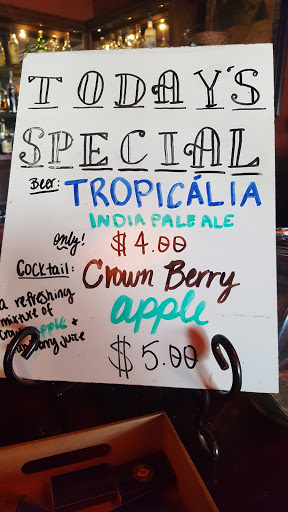 TODAY'S
SPECIAL
Beer: TROPICÁLIA
INDIA PALE ALE
only! $4.00
Cocktail: Crown Berry
apple
a refreshing
mixture of
apple +
juice
$5.00